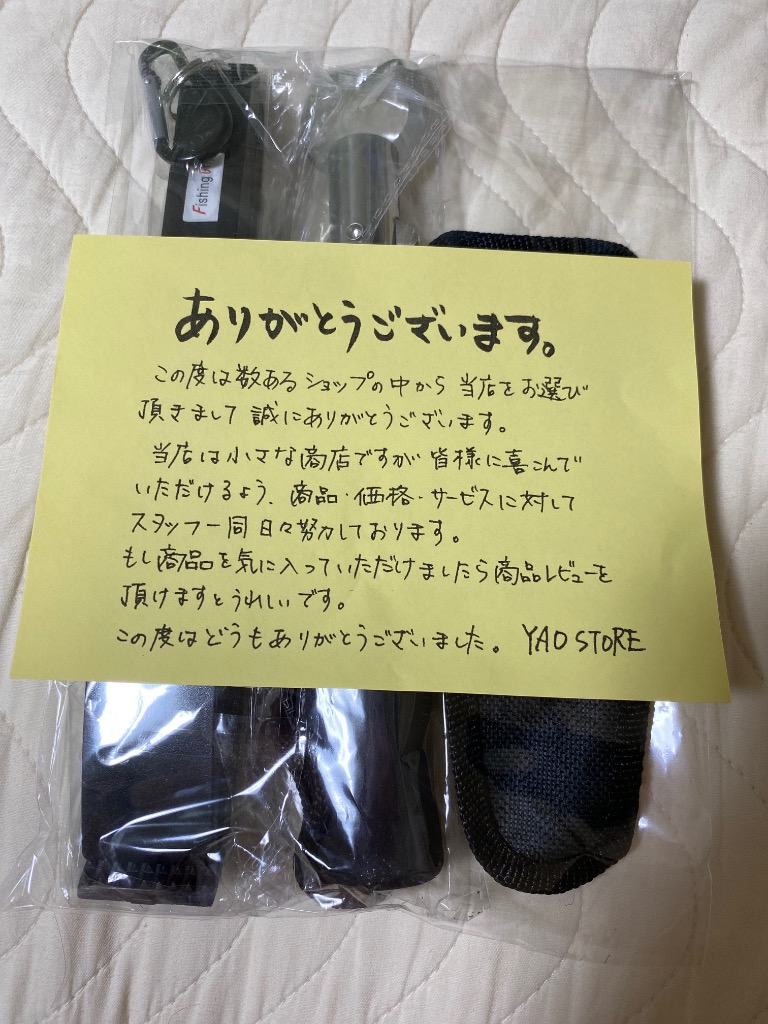 Fishing
ありがとうございます。
この度は数あるショップの中から 当店をお選び
頂きまして 誠にありがとうございます。
当店は小さな商店ですが 皆様に喜こんで
いただけるよう、商品・価格・サービスに対して
スタッフ一同 日々努力しております。
もし商品を気に入っていただけましたら商品レビューを
頂けますとうれしいです。
この度はどうもありがとうございました。 YAO STORE